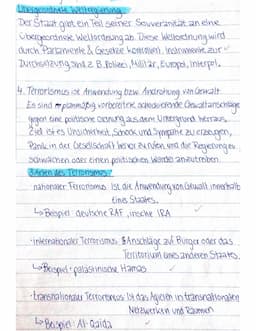 Übergeordnete Weltregierung:
Der Staat gibt ein Teil seiner Souveränität an eine
übergeordnete Weltordnung ab. Diese Weltordnung wird
durch Parlamente & Gesetze kommen. Instrumente zur
Durchsetzung sind z.B. Polizei, Militär, Europol, Interpol.
4. Terrorismus ist Anwendung bzw. Androhung von Gewalt.
Es sind planmäßig vorbereitete schockierende Gewaltanschläge
gegen eine politische Ordnung aus dem Untergrund heraus.
Ziel ist es Unsicherheit, Schock und Sympathie zu erzeugen,
Panik in der Gesellschaft hervor zu rufen und die Regierung zu
schwächen oder einen politischen Wandel anzutreiben.
3 Arten des Terrorismus:
nationaler Terrorismus: Ist die Anwendung von Gewalt innerhalb
eines Staates.
↳ Beispiel: deutsche RAF, irische IRA
-internationaler Terrorismus: Anschläge auf Bürger oder das
Territorium eines anderen Staates.
↳ Beispiel: palästinische Hamas
-transnationaler Terrorismus: Ist das Agieren in transnationalen
Netzwerken und Räumen
↳ Beispiel: Al-Qaida